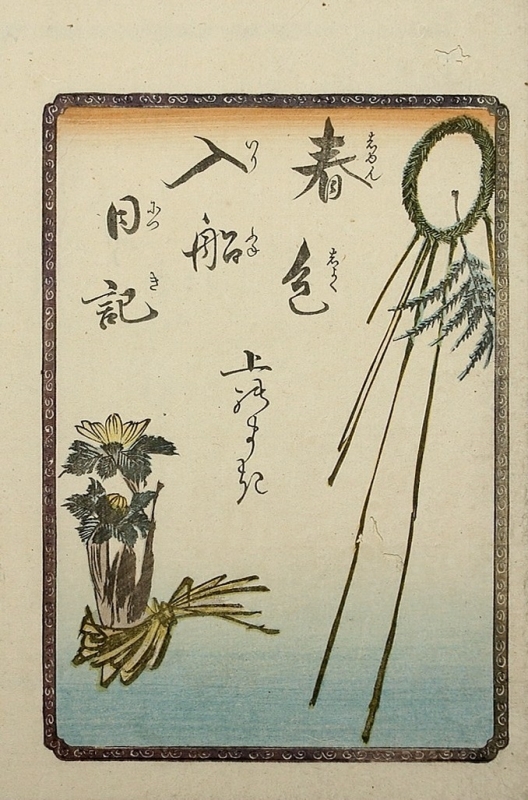 春色
しゆん しよく
入船
いり ふね
日記
につ き
上のまき